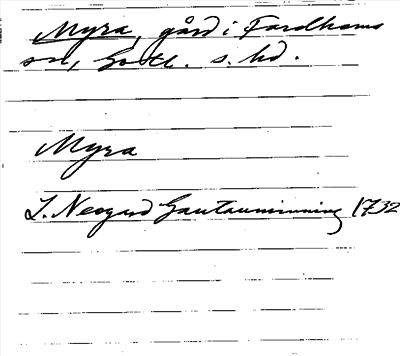 Myra, gård i Fardhems
sn, Gotl. s. hd.
Myra
J. Neogard Gautauminning 1732